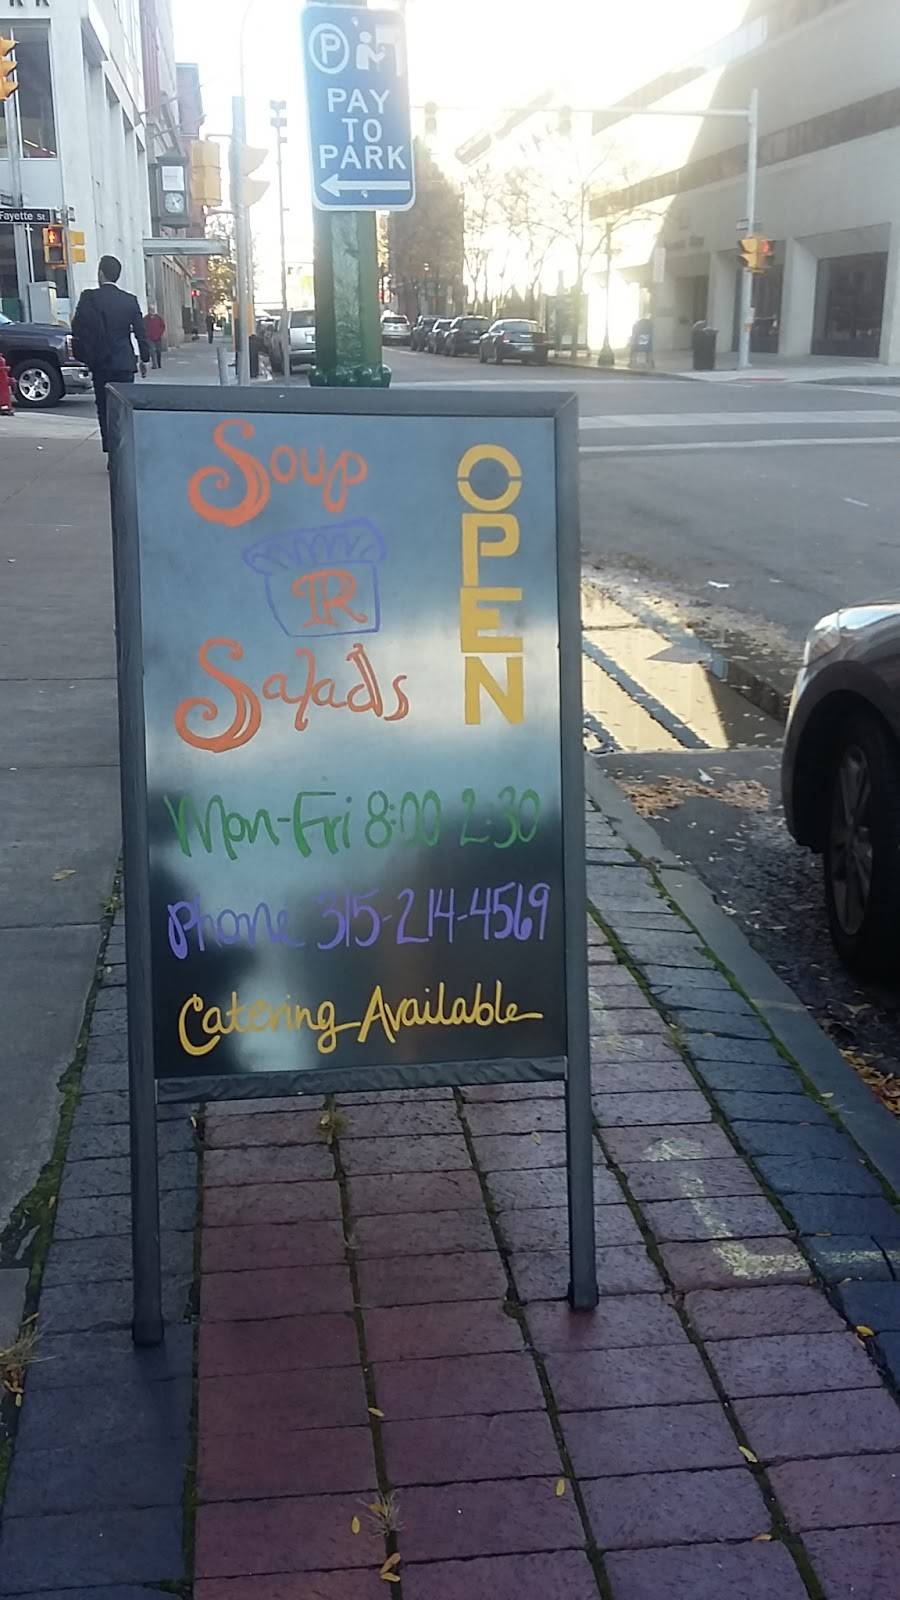 PAY
TO
PARK
Fayette St
Soup
OPEN
R
Salads
Mon-Fri 8:00 2:30
Phone 315-214-4569
Catering Available